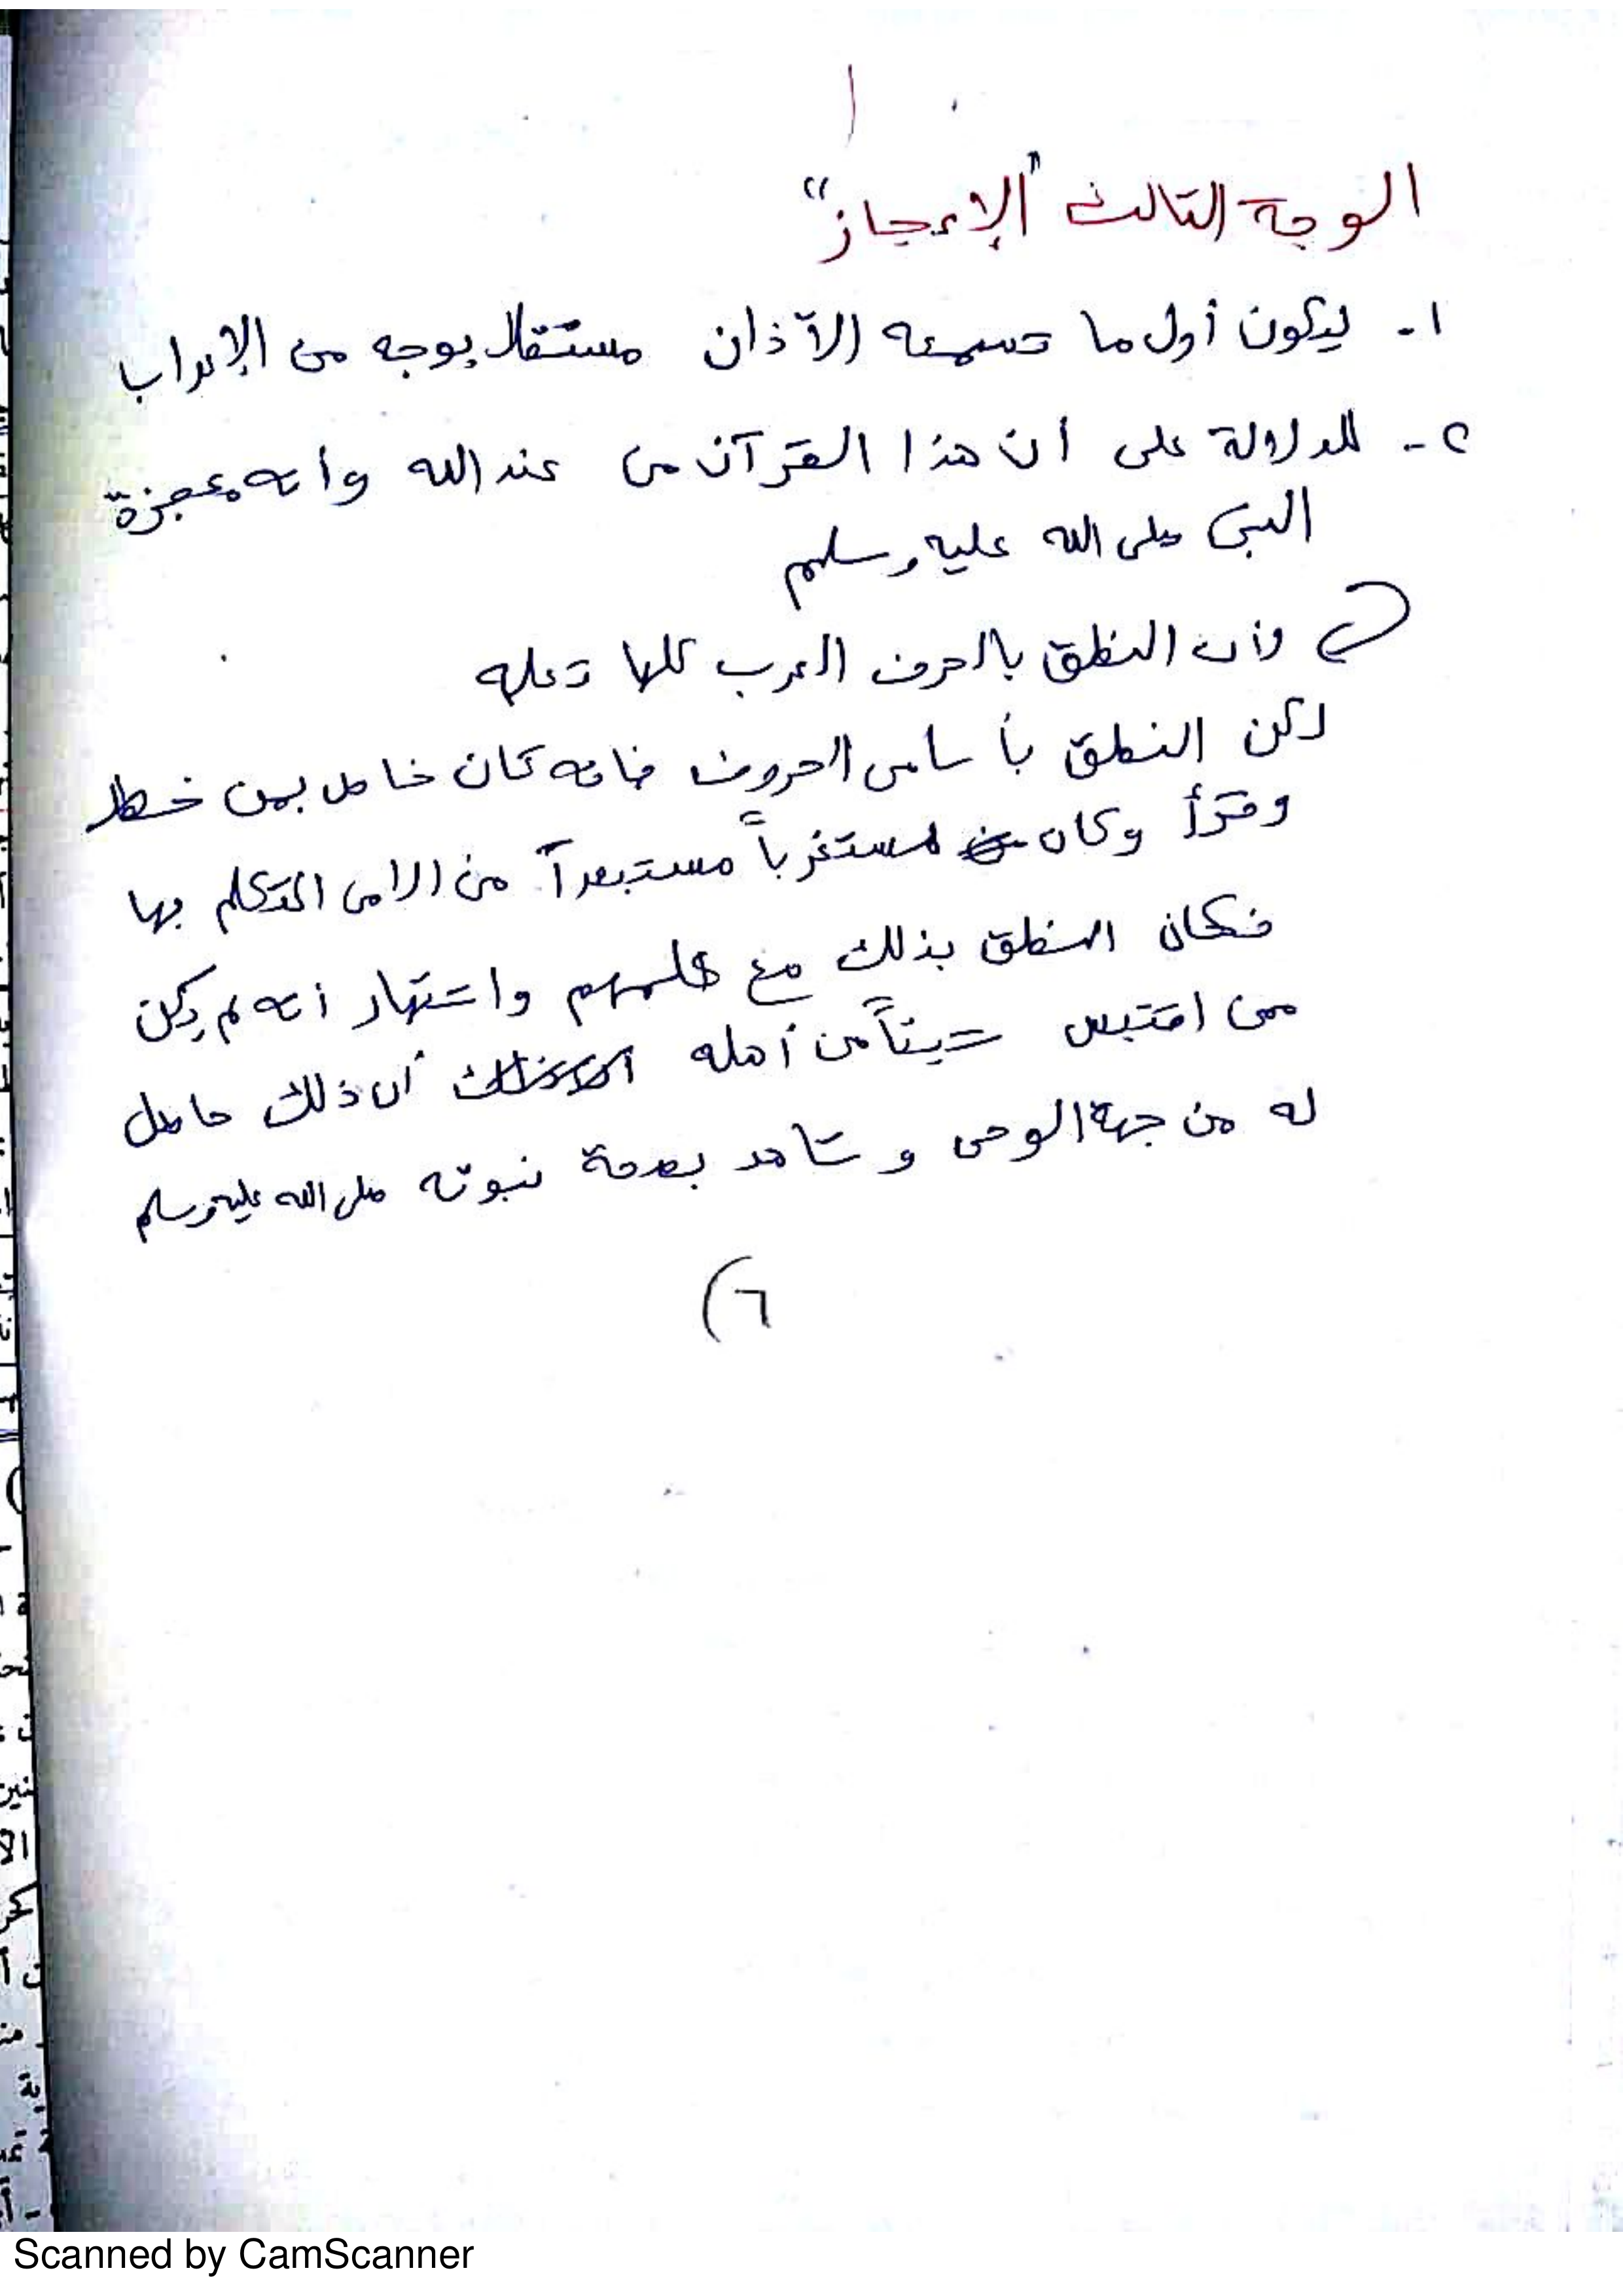 الوجه الثالث "الإعجاز"
١- ليكون أول ما تسمعه الآذان مستقلا بوجه من الإعراب
٢- للدلالة على أن هذا القرآن من عند الله وأنه معجزة
النبي صلى الله عليه وسلم
لأن النطق بالحرف العرب كلها تعله
لكن النطق بأسامى الحروف فانه كان خاص بمن خط
وقرأ وكان مستغرباً مستبعداً من الامى التكلم بها
فكان النطق بذلك مع علمهم واشتهار أنه لم يكن
ممن اقتبس شيئاً من أهله أن ذلك حاصل
له من جهة الوحى و شاهد بصحة نبوته صلى الله عليه وسلم
(٦
Scanned by CamScanner